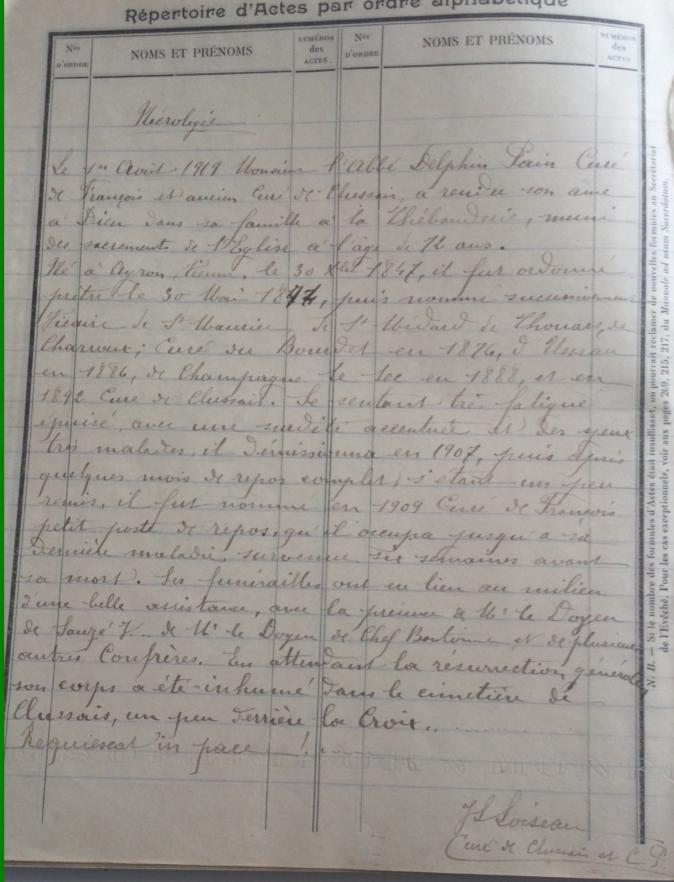 Répertoire d'Actes par ordre alphabétique
Nos D'ORDRE
NOMS ET PRÉNOMS
NUMÉROS des ACTES.
Nos D'ORDRE
NOMS ET PRÉNOMS
NUMÉROS des ACTES.
Nécrologie
Le 1er Août 1919 Monsieur l'Abbé Delphin Pain Curé
de François et ancien Curé de Clussais, a rendu son âme
à Dieu dans sa famille à la Thébauderie, muni
des sacrements de l'Eglise à l'âge de 72 ans.
Né à Ayron, Vienne, le 30 1847, il fut ordonné
prêtre le 30 Mai 1874, puis nommé successivement
Vicaire de St Maurice, de St Médard de Thouars, de
Charroux; Curé du Bourdet en 1876, d'Usseau
en 1886, de Champagne le Sec en 1888, et en
1892 Curé de Clussais. Se sentant très fatigué
épuisé, avec une surdité accentuée et des yeux
très malades, il démissionna en 1907, puis après
quelques mois de repos complet, s'étant un peu
remis, il fut nommé en 1909 Curé de François
petit poste de repos, qu'il occupa jusqu'à sa
dernière maladie survenue six semaines avant
sa mort. Ses funérailles ont eu lieu au milieu
d'une belle assistance, avec la présence de Mr le Doyen
de Sauzé V... de Mr le Doyen de Chef Boutonne et de plusieurs
autres Confrères. En attendant la résurrection générale
son corps a été inhumé dans le cimetière de
Clussais, un peu derrière la Croix..
Requiescat in pace !..
JL Loiseau
Curé de Clussais et C. P.
N. B. — Si le nombre des formules d'Actes était insuffisant, on pourrait réclamer de nouvelles formules au Secrétariat
de l'Evêché. Pour les cas exceptionnels, voir aux pages 209, 215, 217, du Manuale ad usum Sacerdotum.